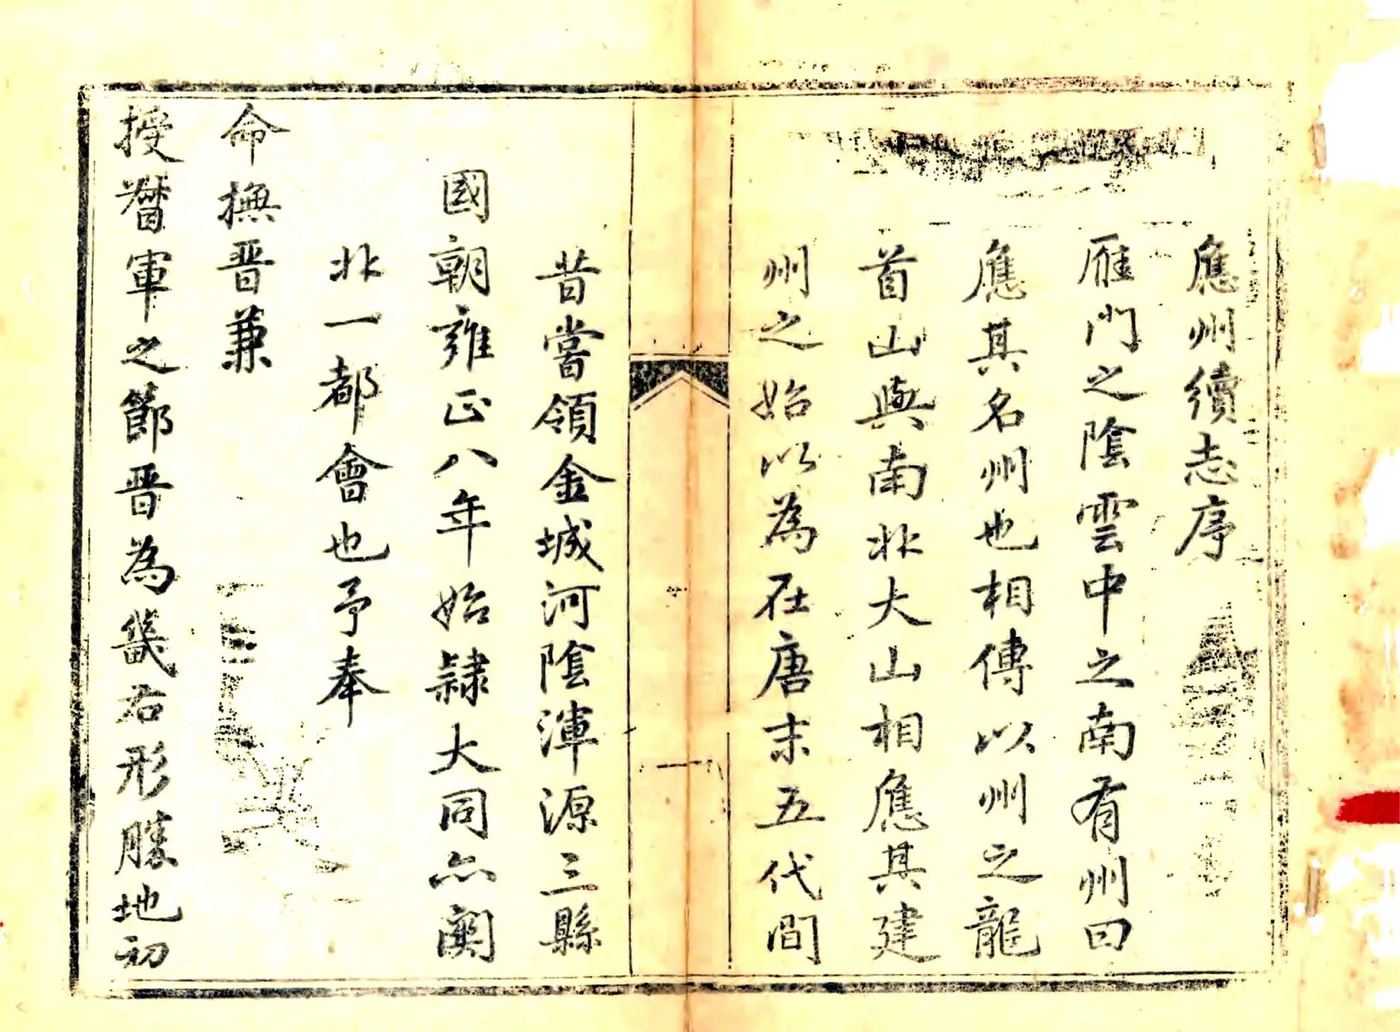 應州續志序
雁門之陰雲中之南有州曰
應其名州也相傳以州之龍
首山與南北大山相應其建
州之始以為在唐末五代間
昔嘗領金城河陰渾源三縣
國朝雍正八年始隸大同亦關
北一都會也予奉
命撫晋兼
授督軍之節晋為畿右形勝地初